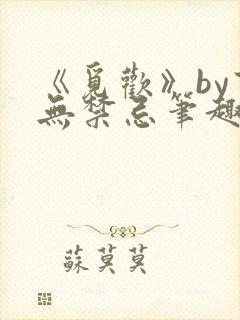 《覓歡》by
無禁忌筆趣
蘇莫莫